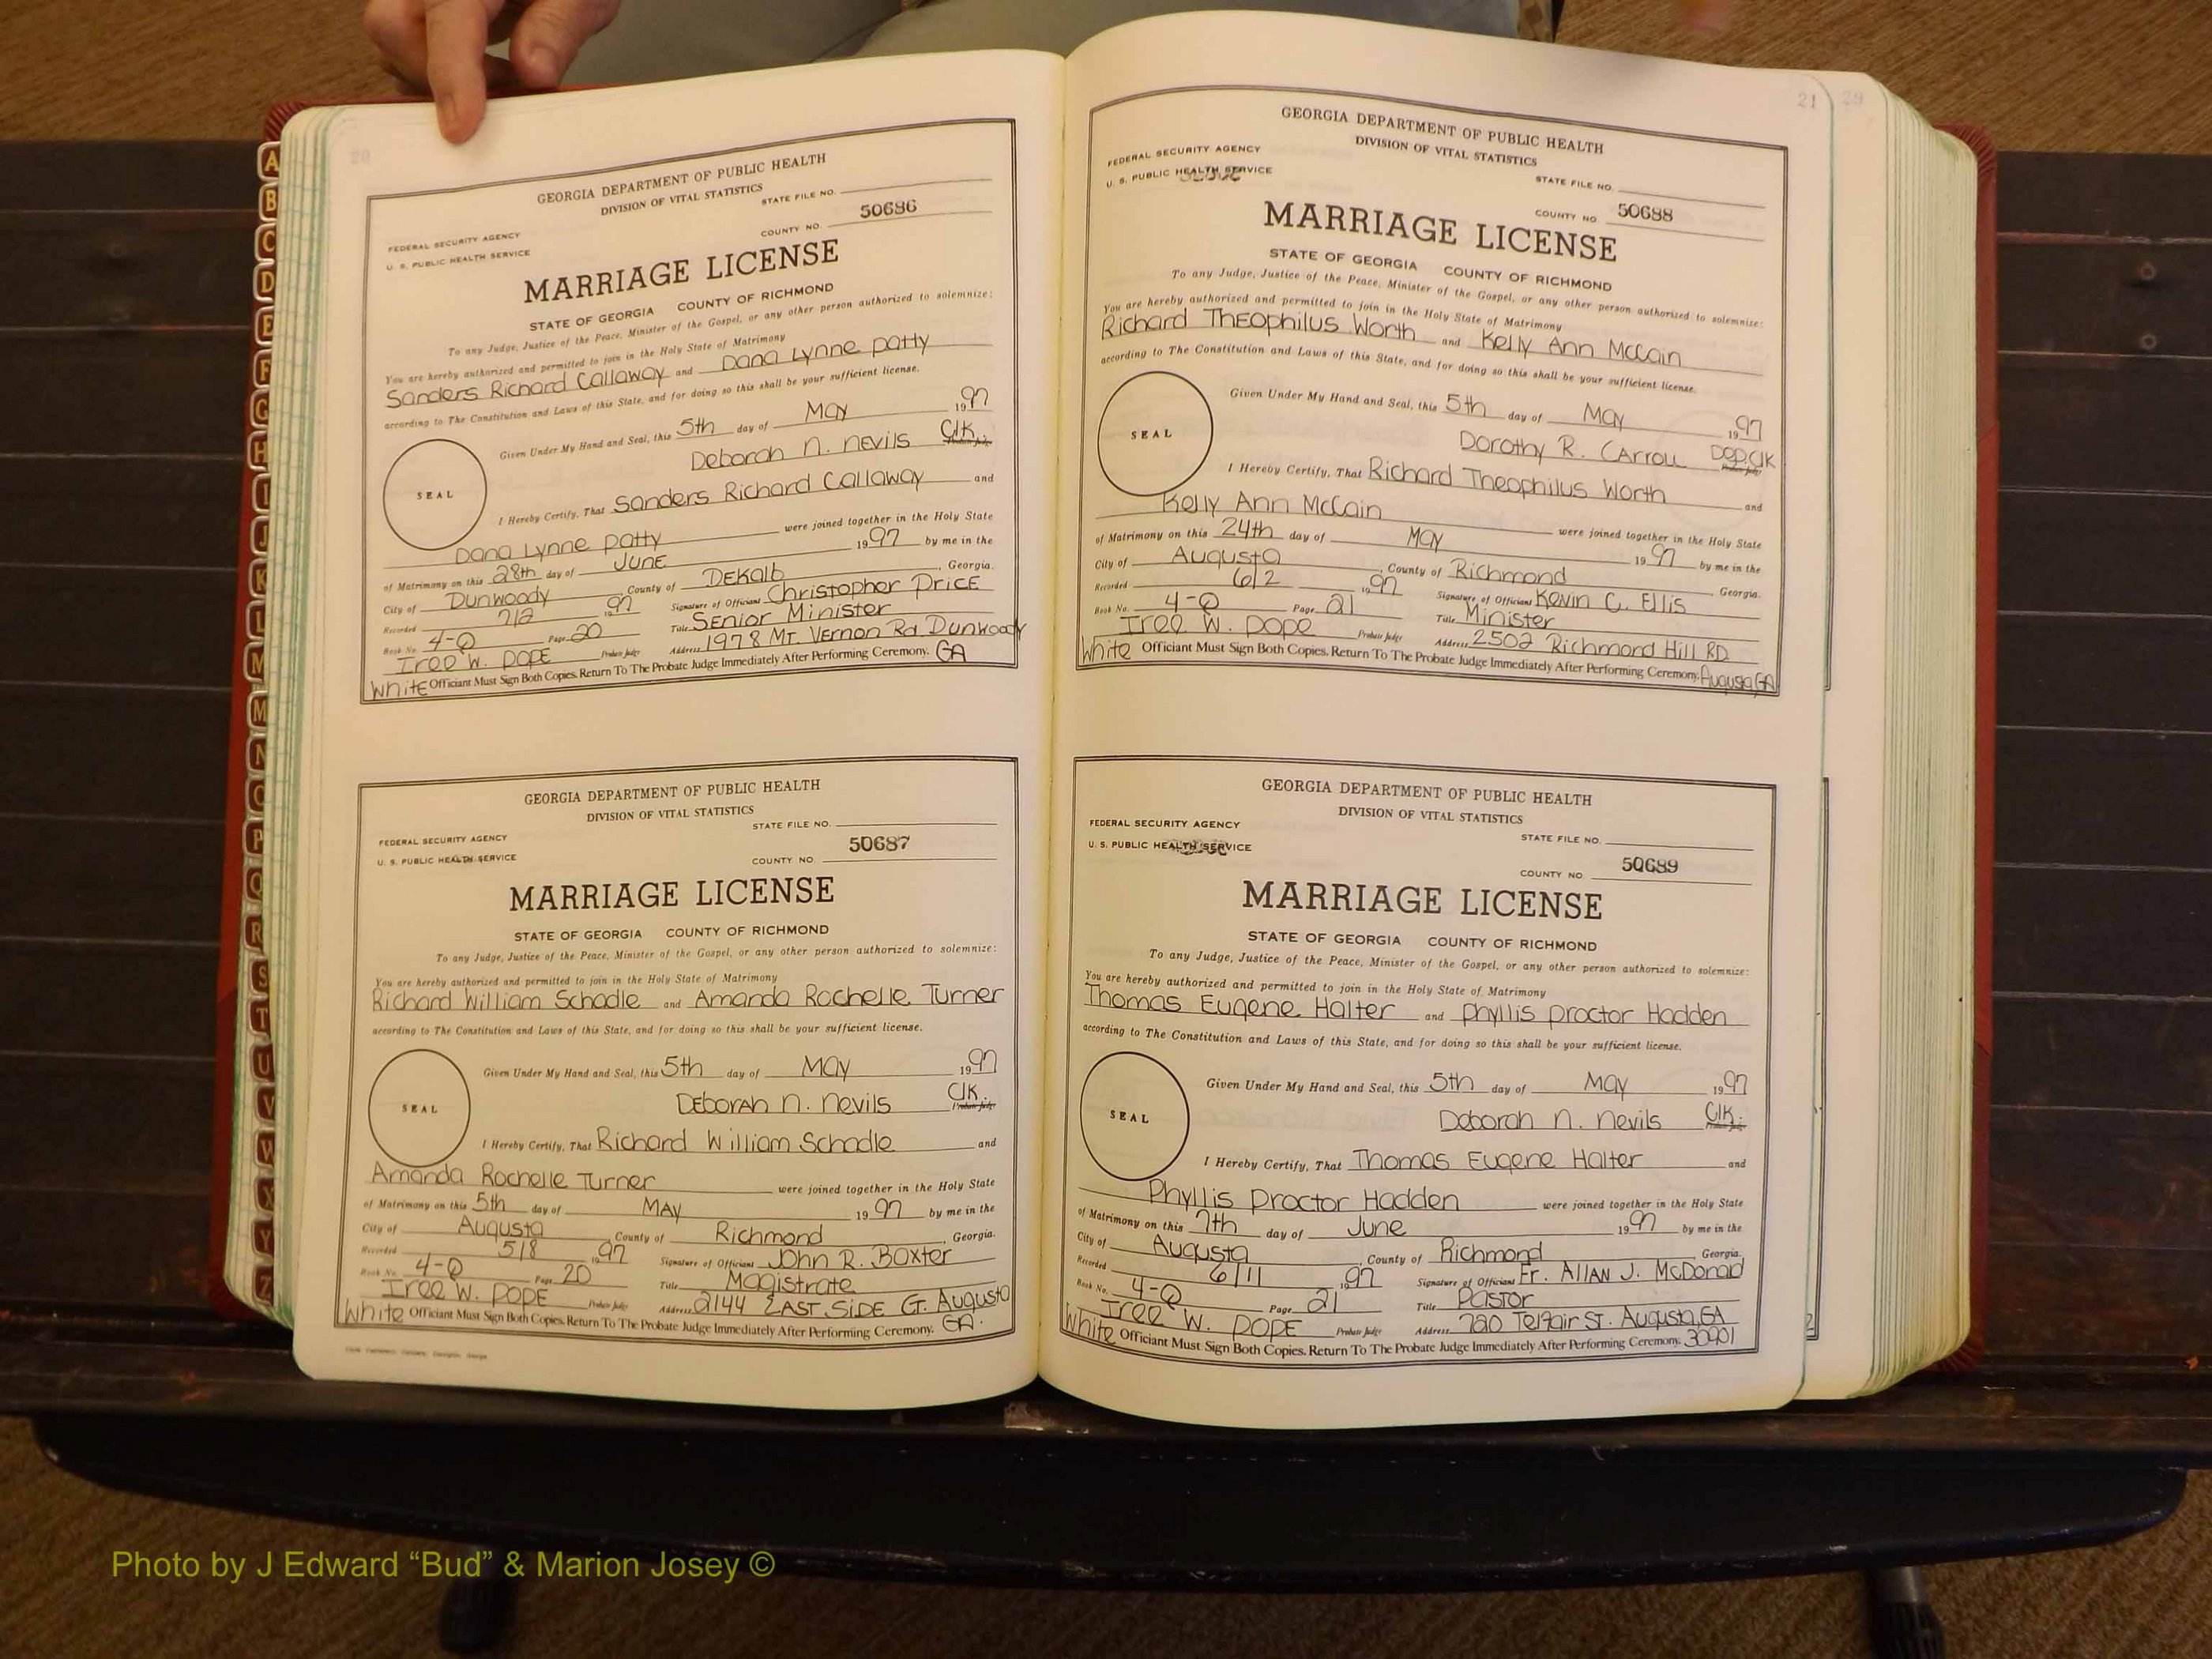 20
GEORGIA DEPARTMENT OF PUBLIC HEALTH
DIVISION OF VITAL STATISTICS
STATE FILE NO.
FEDERAL SECURITY AGENCY
U. S. PUBLIC HEALTH SERVICE
COUNTY NO. 50686
MARRIAGE LICENSE
STATE OF GEORGIA COUNTY OF RICHMOND
To any Judge, Justice of the Peace, Minister of the Gospel, or any other person authorized to solemnize:
You are hereby authorized and permitted to join in the Holy State of Matrimony
Sanders Richard Callaway and Dana Lynne Patty
according to The Constitution and Laws of this State, and for doing so this shall be your sufficient license.
Given Under My Hand and Seal, this 5th day of May 1997
Deborah N. Nevils Clk. Probate Judge
SEAL
I Hereby Certify, That Sanders Richard Callaway and
Dana Lynne Patty were joined together in the Holy State
of Matrimony on this 28th day of JUNE 1997 by me in the
City of Dunwoody County of DeKalb, Georgia.
Recorded 7/2 1997 Signature of Officiant Christopher Price
Book No. 4-Q Page 20 Title Senior Minister
Iree W. Pope Probate Judge Address 1978 Mt. Vernon Rd Dunwoody
White Officiant Must Sign Both Copies. Return To The Probate Judge Immediately After Performing Ceremony. GA
GEORGIA DEPARTMENT OF PUBLIC HEALTH
DIVISION OF VITAL STATISTICS
STATE FILE NO.
FEDERAL SECURITY AGENCY
U. S. PUBLIC HEALTH SERVICE
COUNTY NO. 50687
MARRIAGE LICENSE
STATE OF GEORGIA COUNTY OF RICHMOND
To any Judge, Justice of the Peace, Minister of the Gospel, or any other person authorized to solemnize:
You are hereby authorized and permitted to join in the Holy State of Matrimony
Richard William Schadle and Amanda Rochelle Turner
according to The Constitution and Laws of this State, and for doing so this shall be your sufficient license.
Given Under My Hand and Seal, this 5th day of May 1997
Deborah N. Nevils Clk. Probate Judge
SEAL
I Hereby Certify, That Richard William Schadle and
Amanda Rochelle Turner were joined together in the Holy State
of Matrimony on this 5th day of MAY 1997 by me in the
City of Augusta, County of Richmond, Georgia.
Recorded 5/8 1997 Signature of Officiant John R. Baxter
Book No. 4-Q Page 20 Title Magistrate
Iree W. Pope Probate Judge Address 2144 East Side Ct. Augusta
White Officiant Must Sign Both Copies. Return To The Probate Judge Immediately After Performing Ceremony. GA.
21 29
GEORGIA DEPARTMENT OF PUBLIC HEALTH
DIVISION OF VITAL STATISTICS
FEDERAL SECURITY AGENCY
U. S. PUBLIC HEALTH SERVICE
STATE FILE NO.
COUNTY NO. 50688
MARRIAGE LICENSE
STATE OF GEORGIA COUNTY OF RICHMOND
To any Judge, Justice of the Peace, Minister of the Gospel, or any other person authorized to solemnize:
You are hereby authorized and permitted to join in the Holy State of Matrimony
Richard Theophilus Worth and Kelly Ann McCain
according to The Constitution and Laws of this State, and for doing so this shall be your sufficient license.
Given Under My Hand and Seal, this 5th day of May 1997
Dorothy R. Carroll Dep. Clk Probate Judge
SEAL
I Hereby Certify, That Richard Theophilus Worth and
Kelly Ann McCain were joined together in the Holy State
of Matrimony on this 24th day of May 1997 by me in the
City of Augusta, County of Richmond Georgia.
Recorded 6/2 1997 Signature of Officiant Kevin C. Ellis
Book No. 4-Q Page 21 Title Minister
Iree W. Pope Probate Judge Address 2502 Richmond Hill RD
White Officiant Must Sign Both Copies. Return To The Probate Judge Immediately After Performing Ceremony. Augusta, GA
GEORGIA DEPARTMENT OF PUBLIC HEALTH
DIVISION OF VITAL STATISTICS
FEDERAL SECURITY AGENCY
U. S. PUBLIC HEALTH SERVICE
STATE FILE NO.
COUNTY NO. 50689
MARRIAGE LICENSE
STATE OF GEORGIA COUNTY OF RICHMOND
To any Judge, Justice of the Peace, Minister of the Gospel, or any other person authorized to solemnize:
You are hereby authorized and permitted to join in the Holy State of Matrimony
Thomas Eugene Halter and Phyllis Proctor Hadden
according to The Constitution and Laws of this State, and for doing so this shall be your sufficient license.
Given Under My Hand and Seal, this 5th day of May 1997
Deborah N. Nevils Clk. Probate Judge
SEAL
I Hereby Certify, That Thomas Eugene Halter and
Phyllis Proctor Hadden were joined together in the Holy State
of Matrimony on this 7th day of June 1997 by me in the
City of Augusta, County of Richmond, Georgia.
Recorded 6/11 1997 Signature of Officiant Fr. Allan J. McDonald
Book No. 4-Q Page 21 Title Pastor
Iree W. Pope Probate Judge Address 720 Telfair St. Augusta, GA
White Officiant Must Sign Both Copies. Return To The Probate Judge Immediately After Performing Ceremony. 30901
A
B
C
D
E
F
G
H
I
J
K
L
M
M
N
O
P
Q
R
S
T
U
V
W
X
Y
Z
Photo by J Edward “Bud” & Marion Josey ©